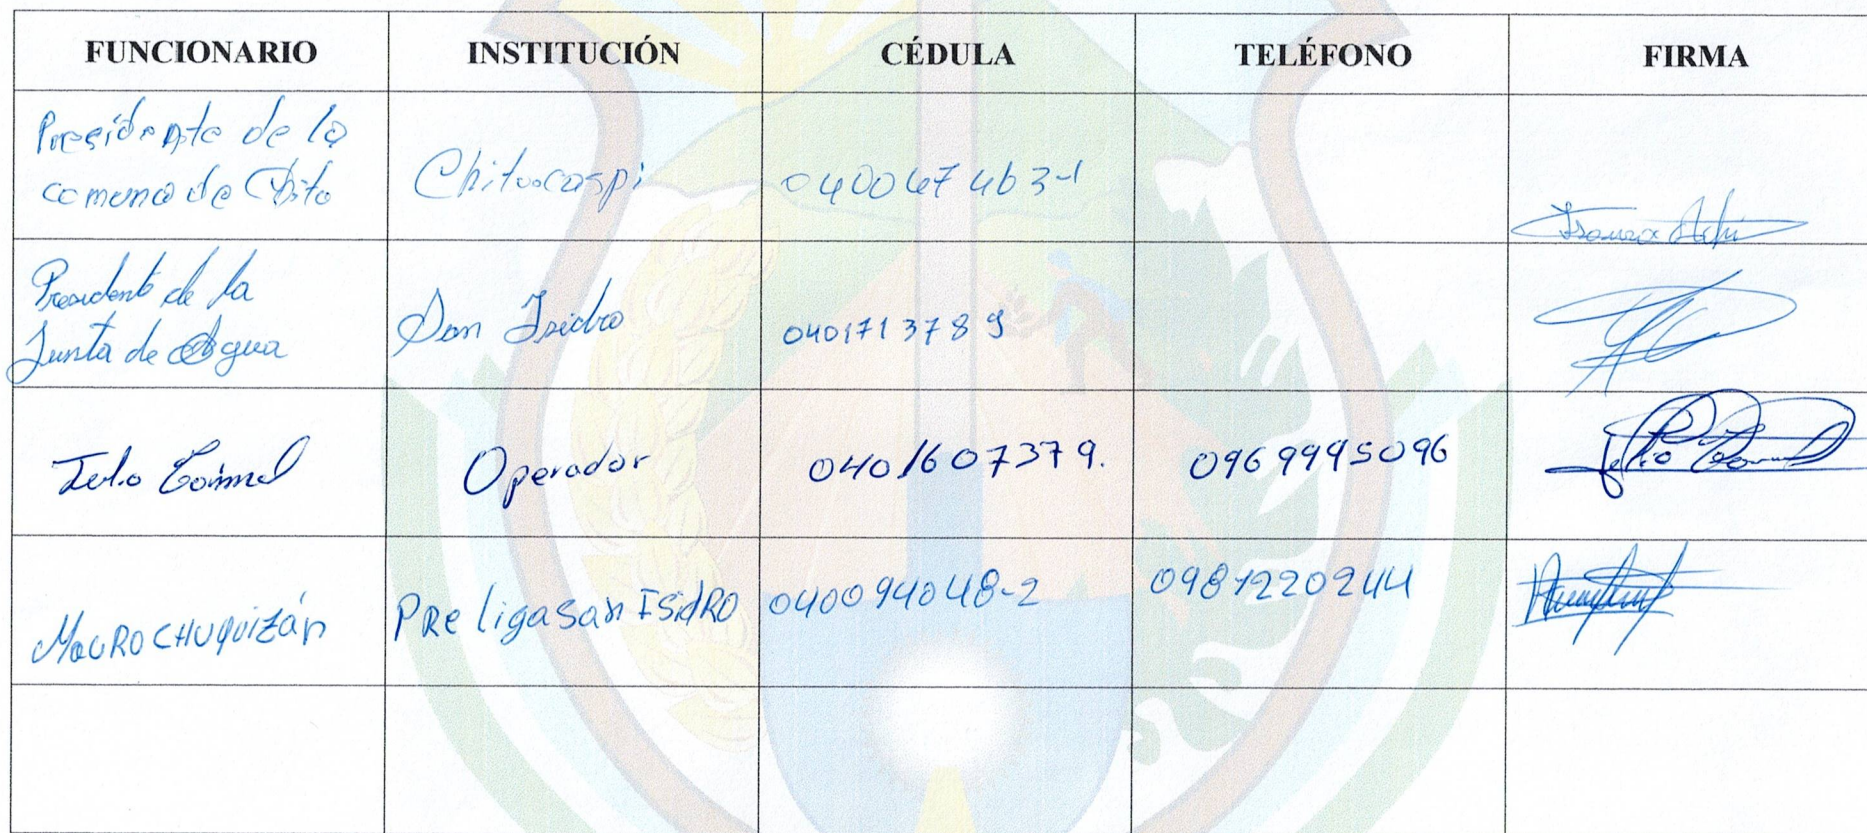 FUNCIONARIO INSTITUCIÓN CÉDULA TELÉFONO FIRMA
Presidente de la
comuna de Chito Chitacaspi 040067463-1
Presidente de la
Junta de Agua San Isidro 0401713789
Operador 0401607379. 0969995096
MauRO CHUquizán PRe liga San ISidRO 040094048-2 0981220244